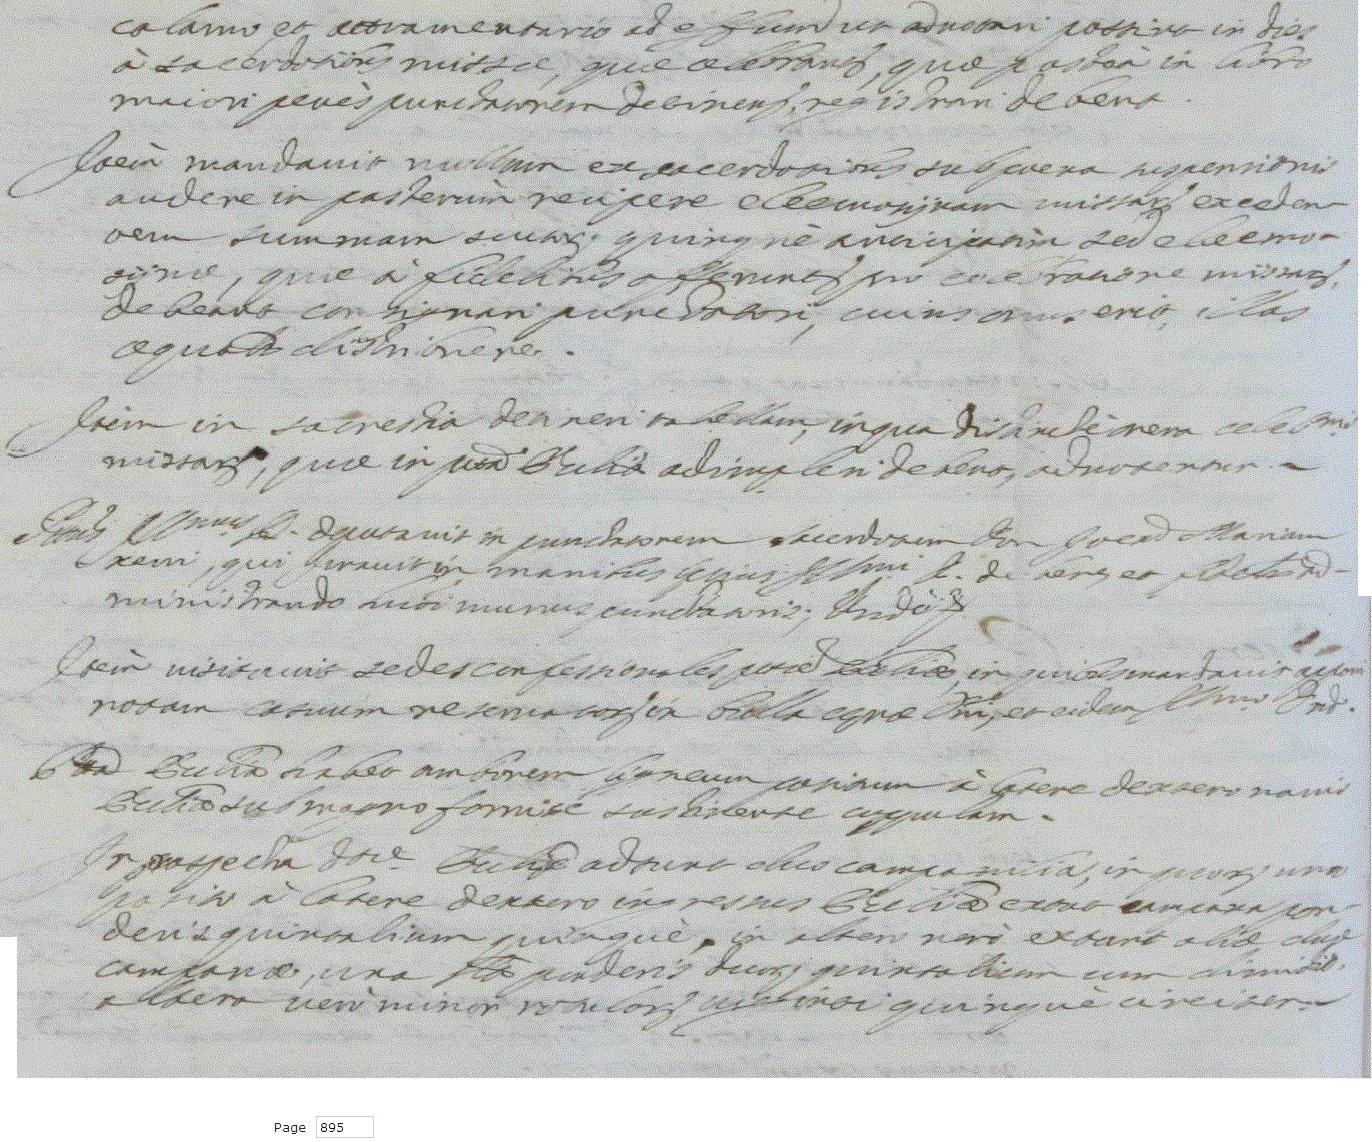 calamo et attramentario ad effectum ut adnotari possint in dies
à sacerdotibus missae, quae celebrant, quae postea in libro
maiori penes punctatorem detinend. registrari debent.
Item mandavit nullum ex sacerdotibus sub poena suspensionis
audere in posterum recipere eleemosynam missarum exceden
tem summam scutorum quinque anticipatam sed eleemo-
sinae, quae à fidelibus offeruntur pro celebratione missarum,
debeant consignari punctatori, cuius onus erit, illas
aequaliter distribuere.
Item in sacrestia detineri tabellam, in qua distincte onera
missarum, quae in Ecclia adimpleri debent, adnotentur.
Illmus D. deputavit in punctatorem sacerdotem Don Marianum
Xerri, qui iuravit in manibus ipsius Illmi D. de bene et ad-
ministrando sibi munus punctatoris;
Item visitavit sedes confessionales in quibus mandavit
notam casuum reservatorum in bulla et eidem Illmo
Ecclia habet ambonem ligneum positum à latere dextero navis
Eccliae sub magno fornice sustinente cuppulam.
In prospectu dictae Eccliae adsunt duo campanilia, in quorum uno
posito à latere dextero ingressus Eccliae extat campana pon-
deris quintalium quinque, in altero vero extant aliae duae
campanae, una ponderis duorum quintalium cum dimidio
altera vero minor rotulorum viginti quinque circiter